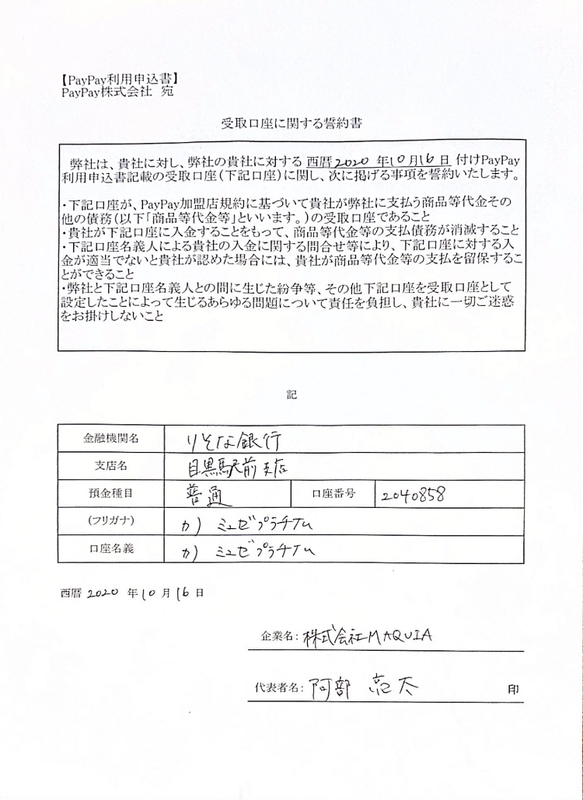 【PayPay利用申込書】
PayPay株式会社 宛
受取口座に関する誓約書
弊社は、貴社に対し、弊社の貴社に対する 西暦2020 年10月16日 付けPayPay
利用申込書記載の受取口座(下記口座)に関し、次に掲げる事項を誓約いたします。
・下記口座が、PayPay加盟店規約に基づいて貴社が弊社に支払う商品等代金その
他の債務(以下「商品等代金等」といいます。)の受取口座であること
・貴社が下記口座に入金することをもって、商品等代金等の支払債務が消滅すること
・下記口座名義人による貴社の入金に関する問合せ等により、下記口座に対する入
金が適当でないと貴社が認めた場合には、貴社が商品等代金等の支払を留保するこ
とができること
・弊社と下記口座名義人との間に生じた紛争等、その他下記口座を受取口座として
設定したことによって生じるあらゆる問題について責任を負担し、貴社に一切ご迷惑
をお掛けしないこと
記
金融機関名 りそな銀行
支店名 目黒駅前支店
預金種目 普通 口座番号 2040858
(フリガナ) カ) ミュゼプラチナム
口座名義 カ) ミュゼプラチナム
西暦 2020 年 10 月 16 日
企業名: 株式会社MAQUIA
代表者名: 阿部 太 印